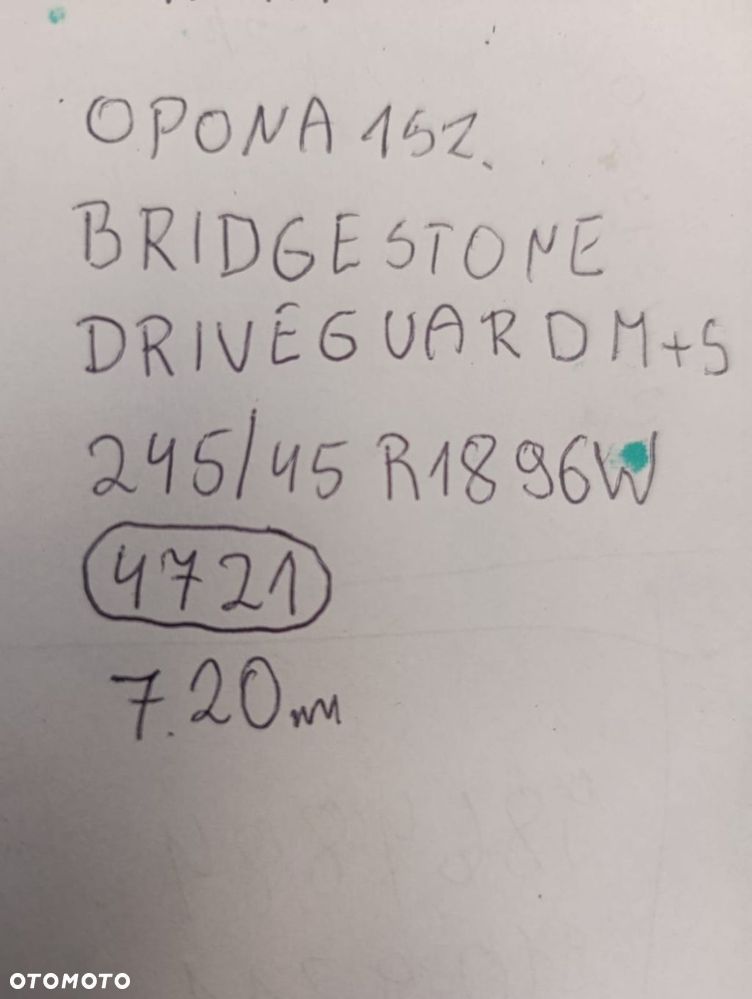 OPONA 1SZ.
BRIDGESTONE
DRIVEGUARD M+S
245/45 R18 96W
4721
7.20mm
OTOMOTO